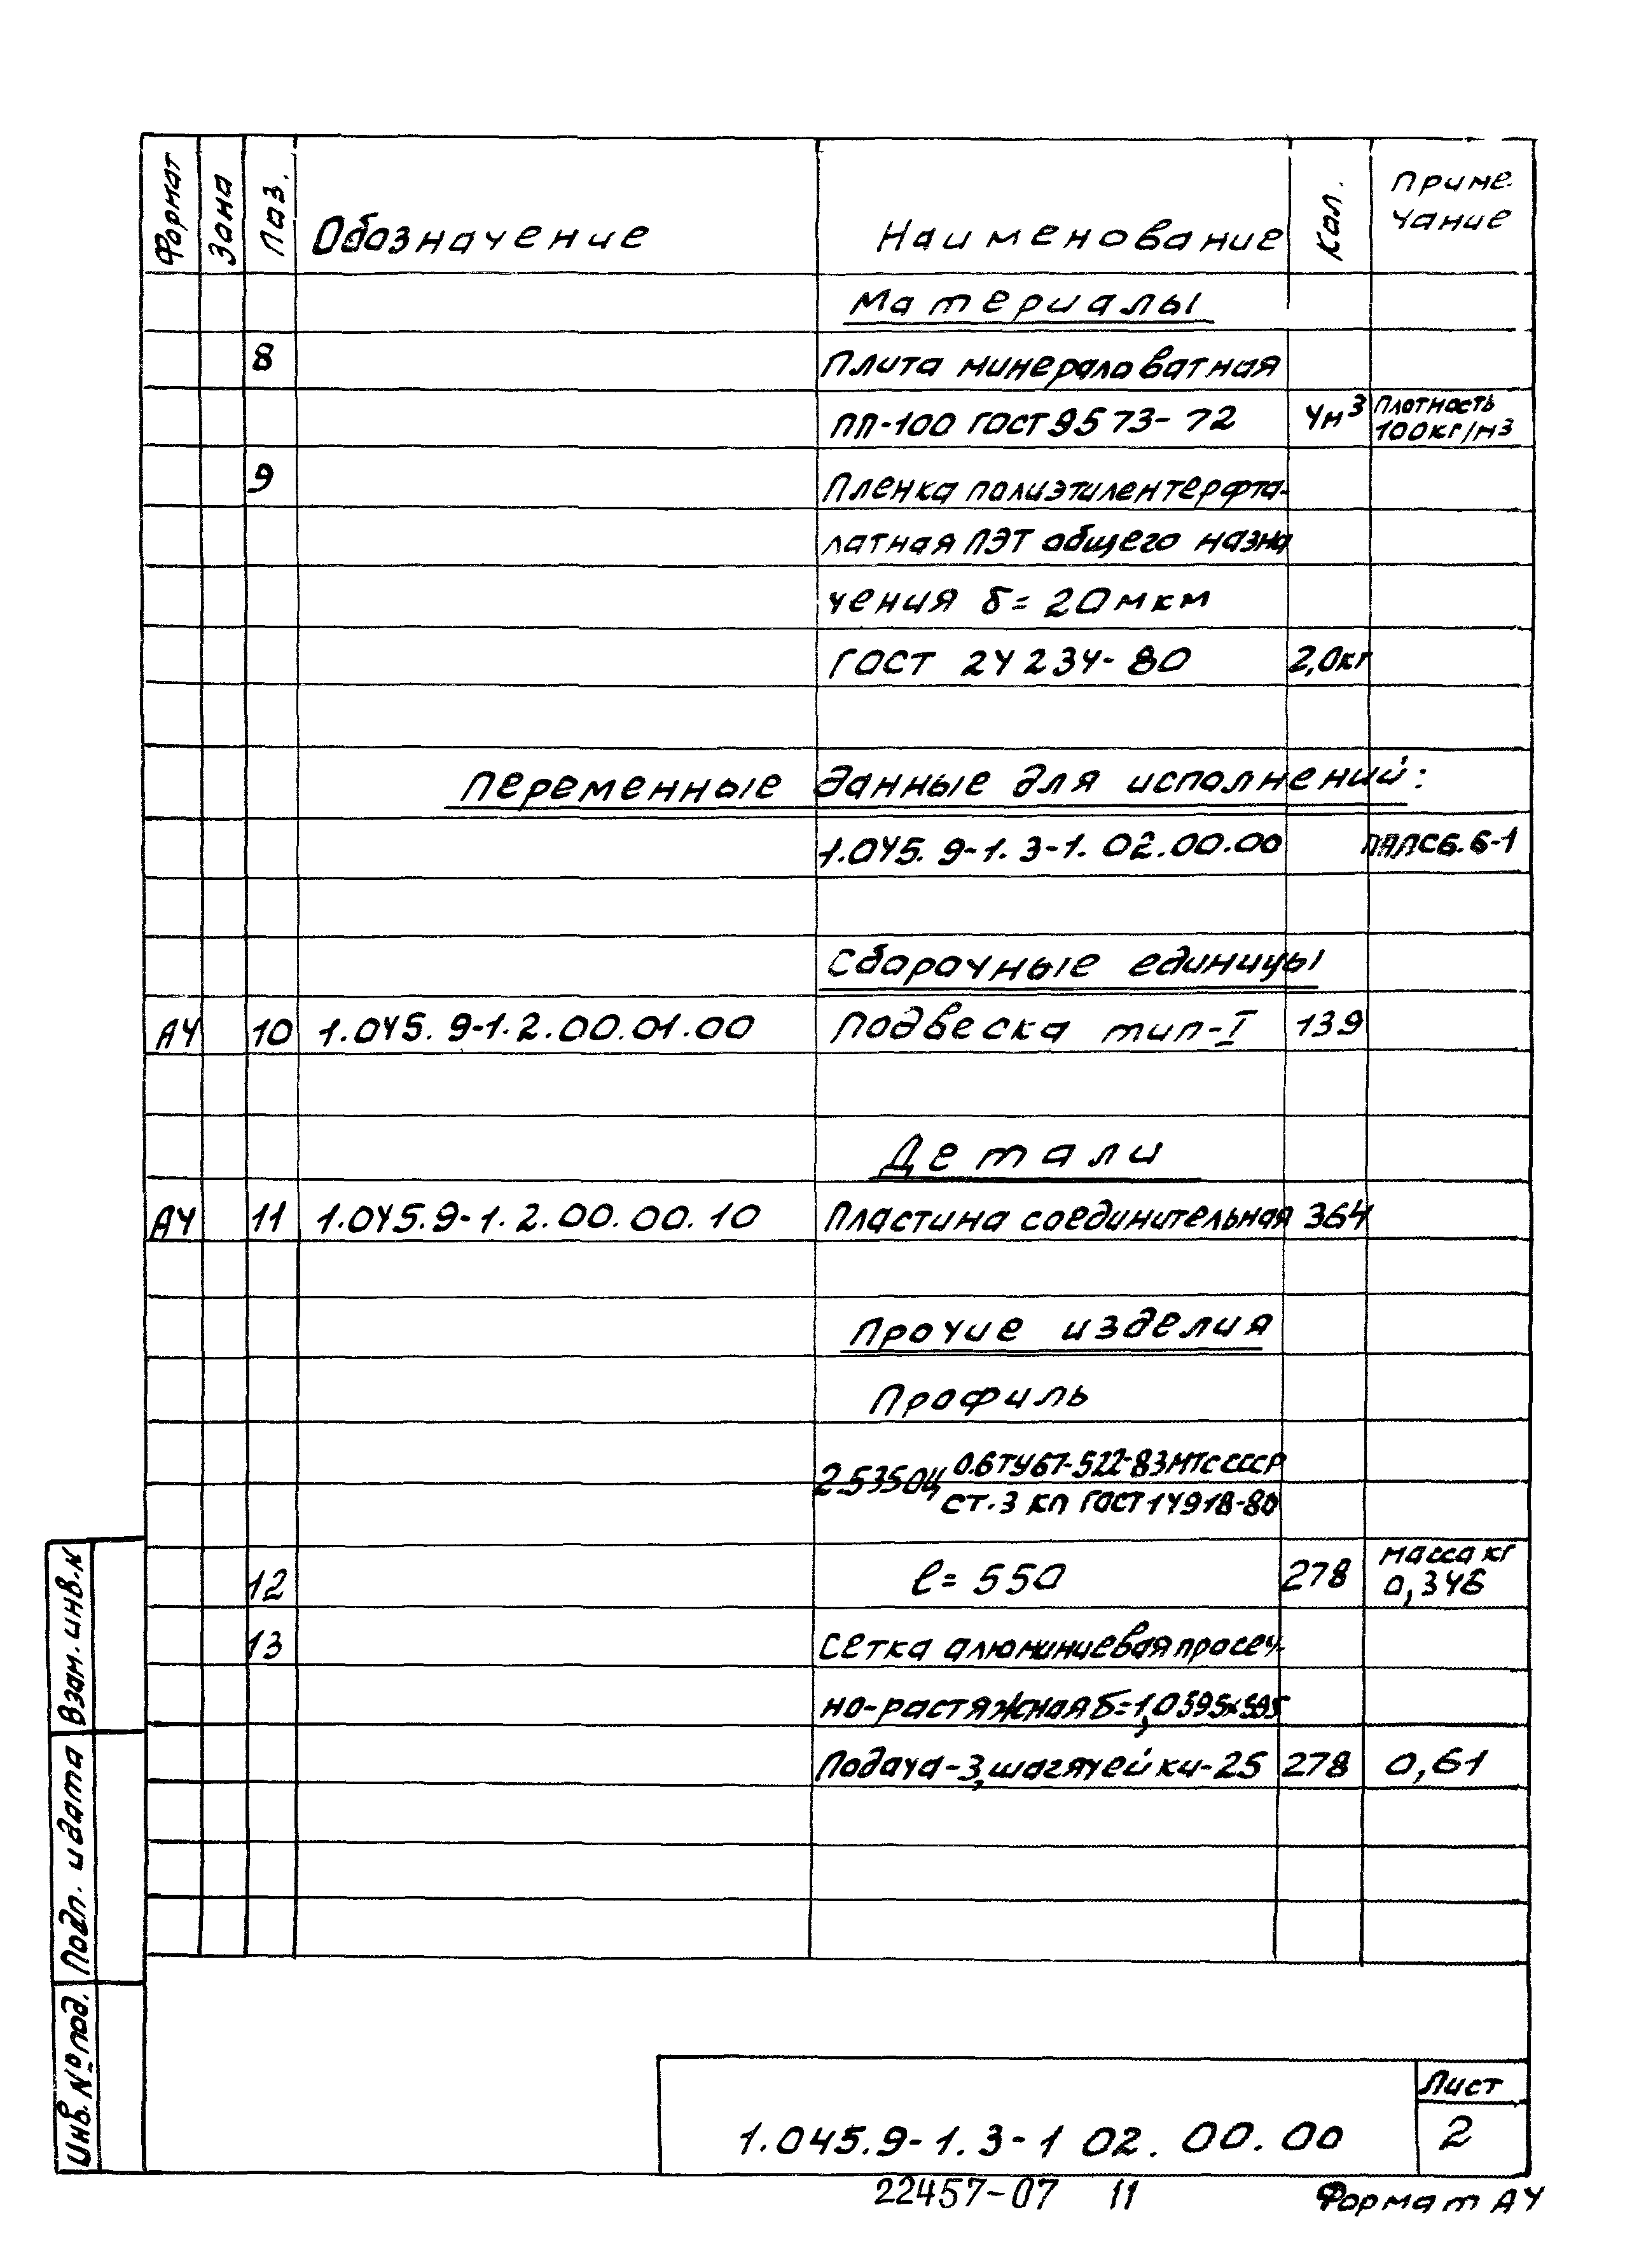 Формат Зона Поз. Обозначение Наименование Кол. Приме-
чание
Материалы
8 Плита минераловатная
ПП-100 ГОСТ 9573-72 4м³ Плотность
100кг/м3
9 Пленка полиэтилентерфта-
латная ПЭТ общего назна
чения δ=20мкм
ГОСТ 24234-80 2,0кг
Переменные данные для исполнений:
1.045.9-1.3-1.02.00.00 ПЯЛС6.6-1
Сборочные единицы
А4 10 1.045.9-1.2.00.01.00 Подвеска тип-I 139
Детали
А4 11 1.045.9-1.2.00.00.10 Пластина соединительная 364
Прочие изделия
Профиль
2.53504 0.6 ТУ67-522-83МТС СССР
ст.3 кп ГОСТ 14918-80
масса кг
12 ℓ=550 278 0,346
13 Сетка алюминиевая просеч-
но-растяжная δ=1,0 595х595
Подача-3, шаг ячейки-25 278 0,61
Взам. инв. N
Подп. и дата
Инв. № под.
1.045.9-1.3-1 02.00.00
Лист
2
22457-07 11
Формат А4